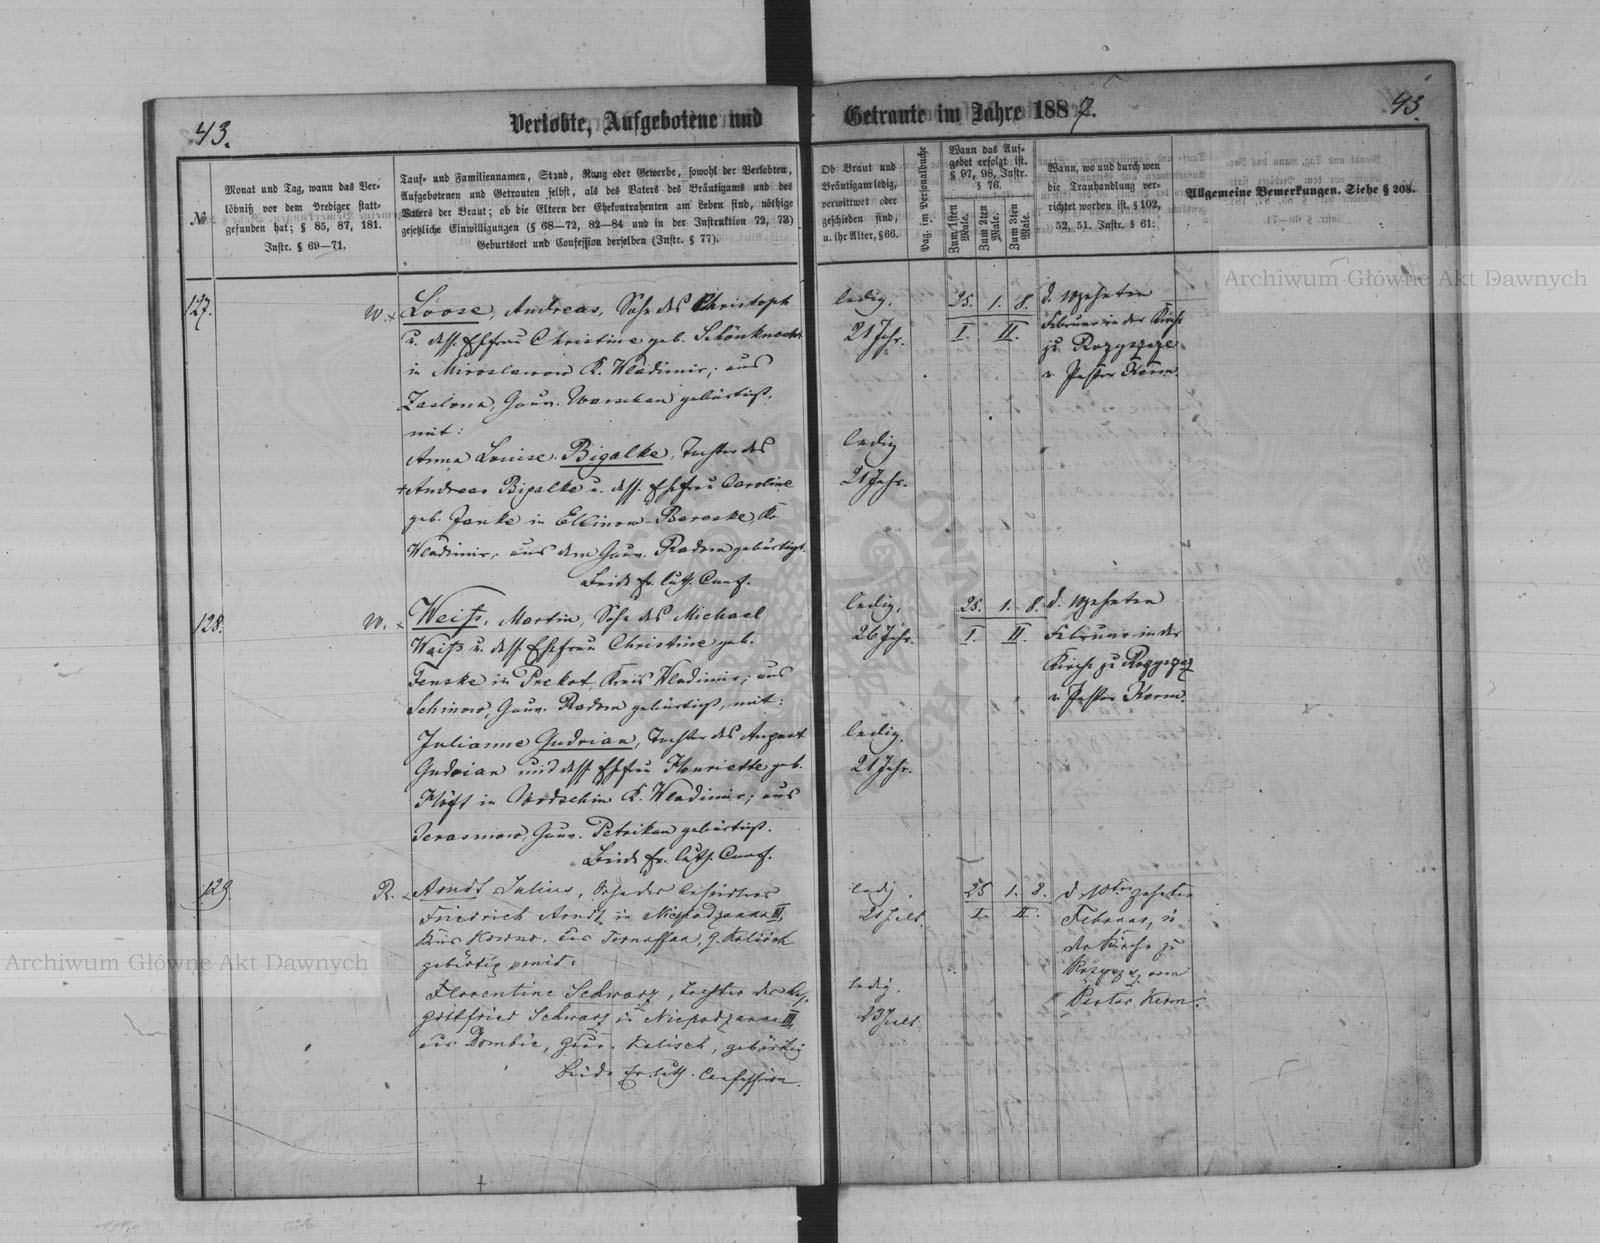 43.
Verlobte, Aufgebotene und
Getraute im Jahre 1887.
43.
№
Monat und Tag, wann das Ver-
löbniß vor dem Prediger statt-
gefunden hat; § 85, 87, 181.
Instr. § 69—71.
Tauf- und Familiennamen, Stand, Rang oder Gewerbe, sowohl der Verlobten,
Aufgebotenen und Getrauten selbst, als des Vaters des Bräutigams und des
Vaters der Braut; ob die Eltern der Ehekontrahenten am Leben sind, nöthige
gesetzliche Einwilligungen (§ 68—72, 82—84 und in der Instruktion 72, 73)
Geburtsort und Confession derselben (Instr. § 77).
Ob Braut und
Bräutigam ledig,
verwittwet oder
geschieden sind,
u. ihr Alter, § 66.
Pag. im Personalbuche
Wann das Auf-
gebot erfolgt ist.
§ 97, 98, Instr.
§ 76.
Zum 1sten Male.
Zum 2ten Male.
Zum 3ten Male.
Wann, wo und durch wen
die Trauhandlung ver-
richtet worden ist. § 102,
52, 51. Instr. § 61:
Allgemeine Bemerkungen. Siehe § 208.
127.
W. x Loose, Andreas, Sohn des Christoph
u. dess. Ehefrau Christine geb. Schönknecht
in Miroslawow K. Wladimir; aus
Zaslona, Gouv. Warschau gebürtig,
mit:
Anna Louise Bigalke, Tochter des
+ Andreas Bigalke u. dess. Ehefrau Caroline
geb. Janke in Ellinow-Bereske, K.
Wladimir, aus dem Gouv. Radom gebürtig.
Beide ev. luth. Conf.
ledig.
21 Jahr.
ledig
21 Jahr.
25. 1. 8.
I. II.
d. achtzehnten
Februar in der Kirche
zu Rozyszcze
v. Pastor Kerm.
128.
W. x Weiß, Martin, Sohn des Michael
Weiß u. dess Ehefrau Christine geb.
Fenske in Prekot, Kreis Wladimir; aus
Schinow, Gouv. Radom gebürtig, mit:
Julianne Gudrian, Tochter des August
Gudrian und dess Ehefrau Henriette geb.
in K. Wladimir; aus
Gouv. Petrikau gebürtig.
Beide ev. luth. Conf.
ledig,
26 Jahr.
ledig.
21 Jahr.
25. 1. 8.
I. II.
d. achtzehnten
Februar in der
Kirche zu Rozyszcz
v. Pastor Kerm.
129.
R. x Arndt Julius, Sohn des
Friedrich Arndt in Niespodzanna III,
Kreis Kowno, aus G. Kalisch
gebürtig mit:
Florentine Schwarz, Tochter des
Gottfried Schwarz in Niespodzanna III
aus Dombie, Gouv. Kalisch, gebürtig
Beide ev. luth. Confession.
ledig.
21 Jahr.
ledig.
23 Jahr.
25 1. 8.
I. II.
Februar, in
der Kirche zu
vom
Pastor Kerm.
Archiwum Główne Akt Dawnych
Archiwum Główne Akt Dawnych